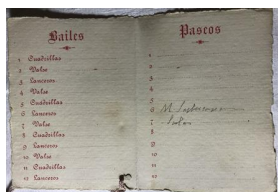 Bailes
1 Cuadrillas
2 Valse
3 Lanceros
4 Valse
5 Cuadrillas
6 Lanceros
7 Valse
8 Cuadrillas
9 Lanceros
10 Valse
11 Cuadrillas
12 Lanceros
Paseos
1
2
3
4
5
6 M.
7
8
9
10
11
12